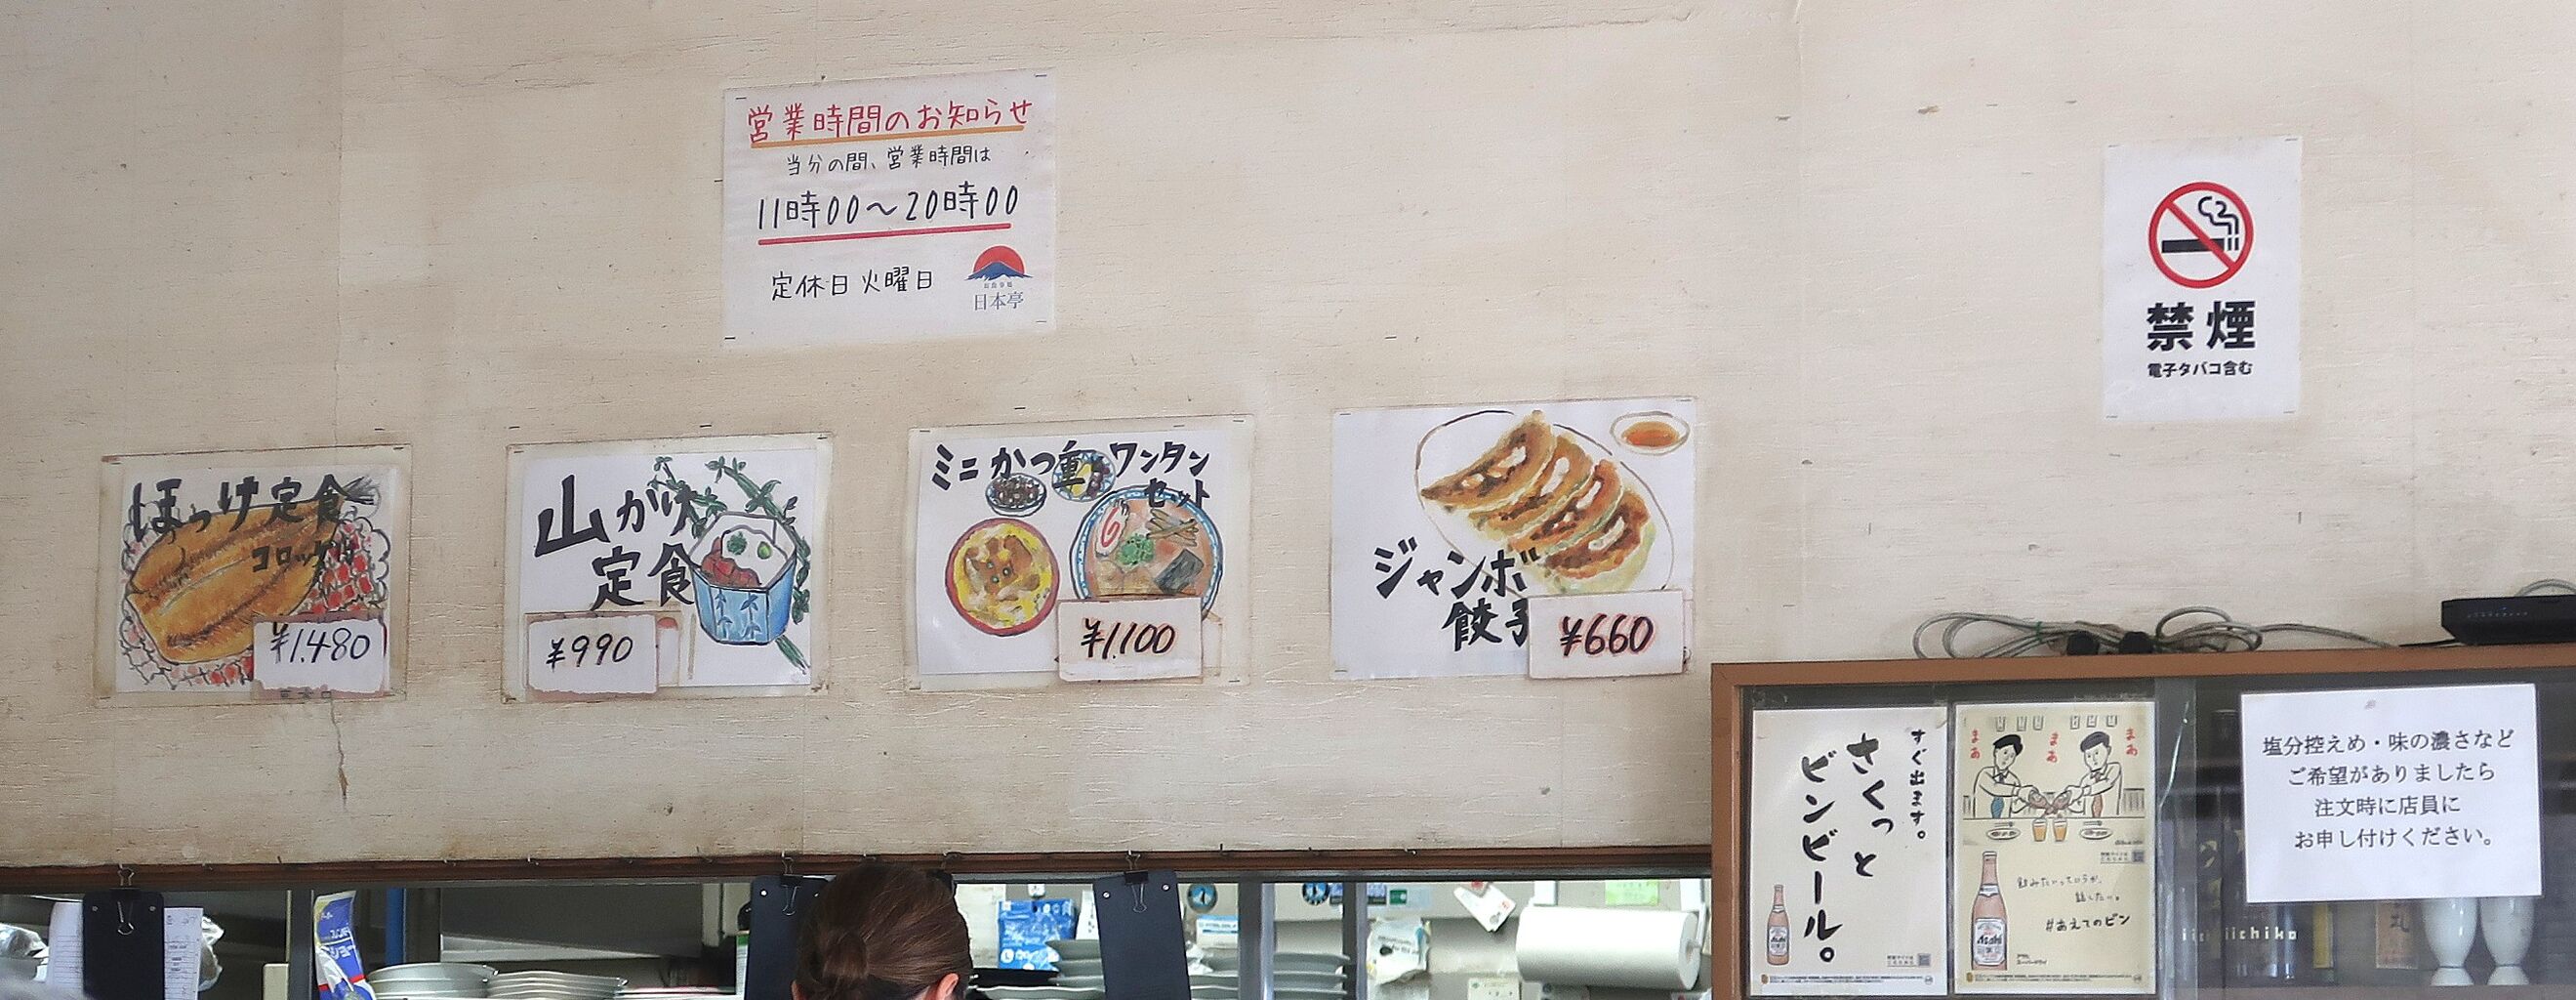 営業時間のお知らせ
当分の間、営業時間は
11時00〜20時00
定休日 火曜日
日本亭
禁煙
電子タバコ含む
ほっけ定食
コロッケ付
¥1,480
山かけ
定食
¥990
ミニかつ重ワンタン
セット
¥1,100
ジャンボ
餃子
¥660
すぐ出ます。
さくっと
ビンビール。
まあ
まあ
まあ
飲みたいっていうか、
話したい。
#あえてのビン
Asahi
アサヒ
スーパードライ
塩分控えめ・味の濃さなど
ご希望がありましたら
注文時に店員に
お申し付けください。
iichiko